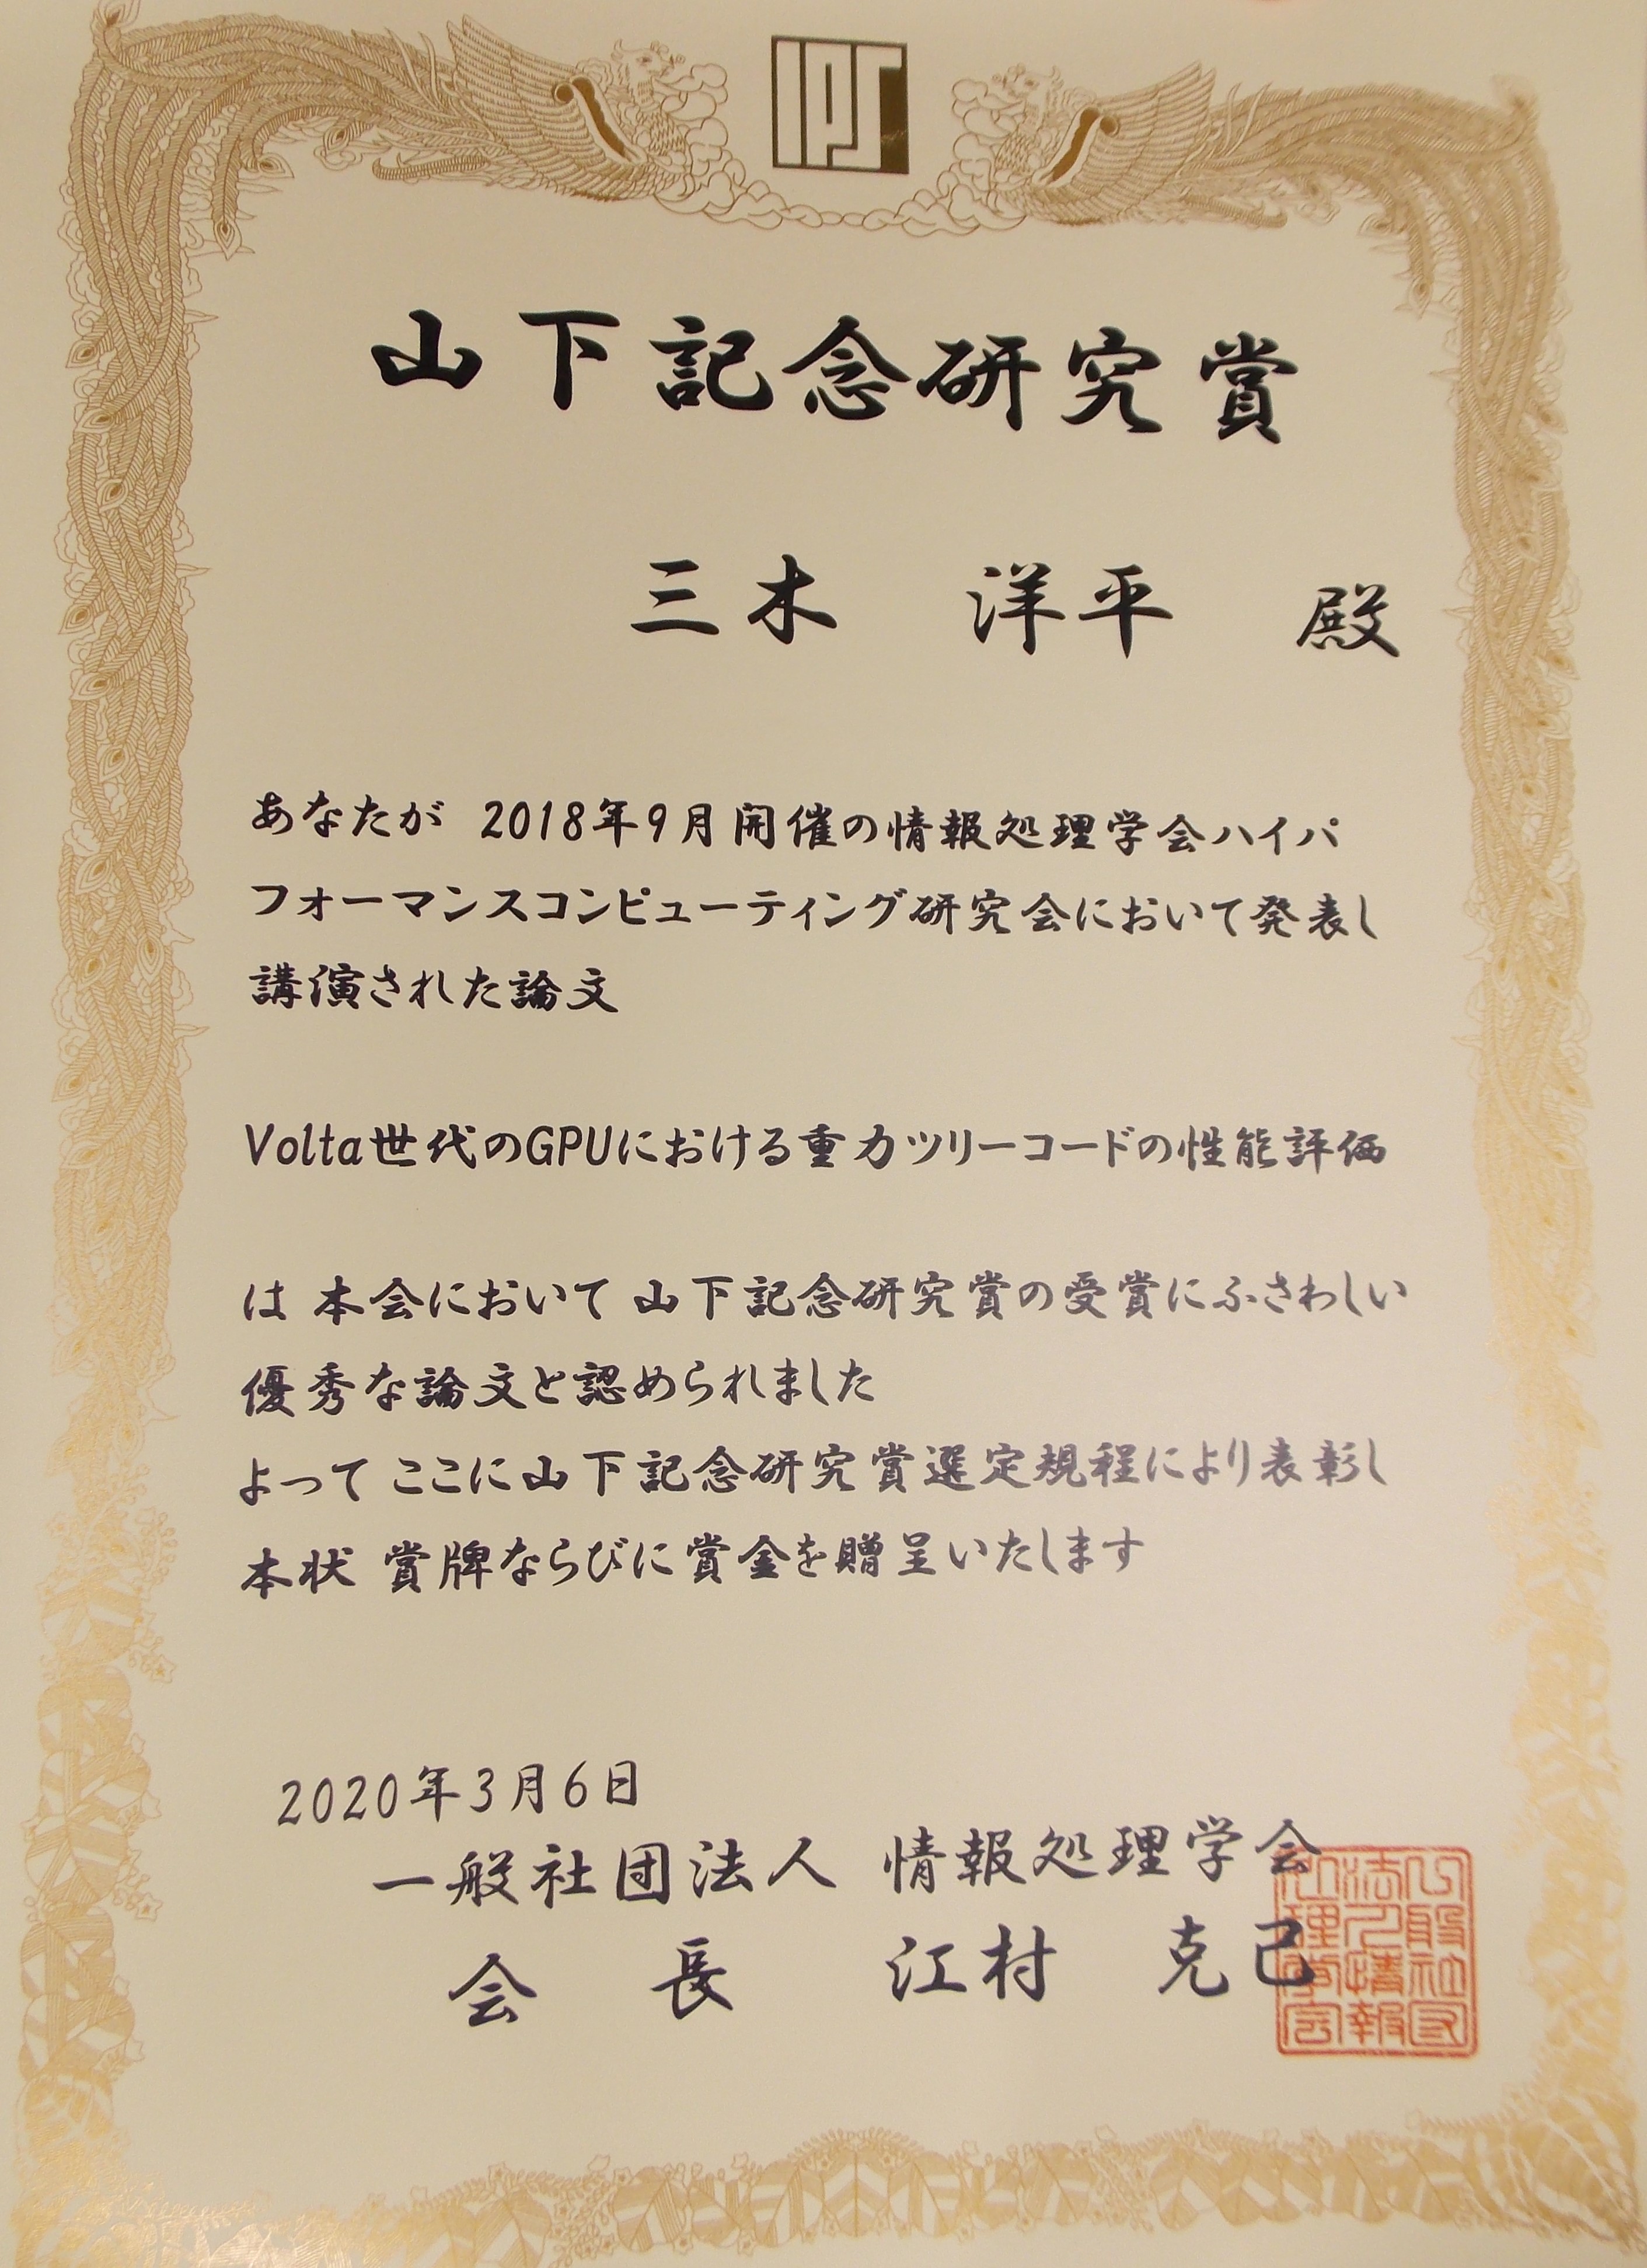 IPSJ
山下記念研究賞
三木 洋平 殿
あなたが 2018年9月開催の情報処理学会ハイパ
フォーマンスコンピューティング研究会において発表し
講演された論文
Volta世代のGPUにおける重力ツリーコードの性能評価
は 本会において 山下記念研究賞の受賞にふさわしい
優秀な論文と認められました
よって ここに山下記念研究賞選定規程により表彰し
本状 賞牌ならびに賞金を贈呈いたします
2020年3月6日
一般社団法人 情報処理学会
会 長 江村 克己